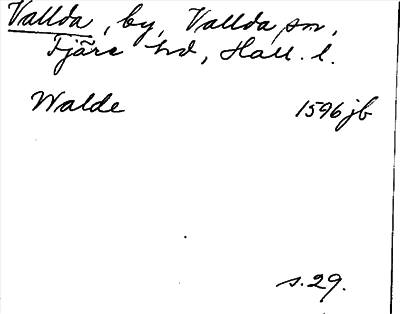 Vallda, by, Vallda sn,
Fjäre hd, Hall. l.
Walde 1596 jb
s. 29.